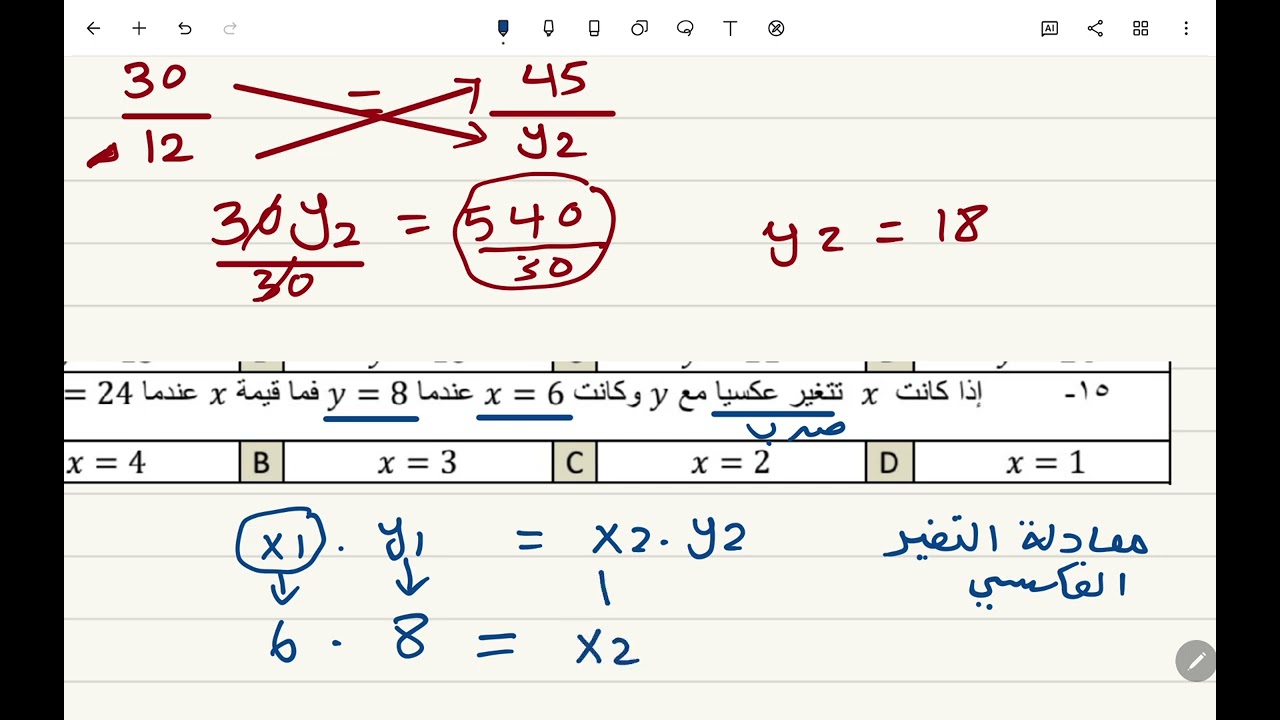 AI T
30 = 45
12 y2
30y2 = 540 y2 = 18
30 30
١٥- إذا كانت x تتغير عكسيا مع y وكانت x = 6 عندما y = 8 فما قيمة x عندما = 24
ضرب
x = 4 B x = 3 C x = 2 D x = 1
x1 . y1 = x2 . y2 معادلة التغير
العكسي
6 . 8 = x2